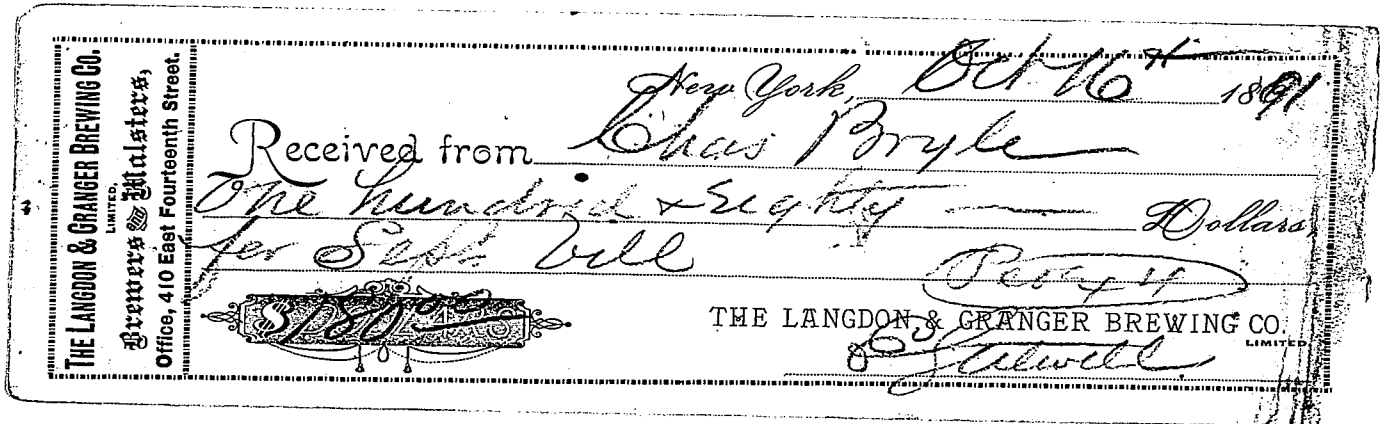 THE LANGDON & GRANGER BREWING CO.
LIMITED,
Brewers and Malsters,
Office, 410 East Fourteenth Street.
New York, Oct 16th 1891
Received from Chas Bryle
One hundred & Eighty Dollars,
for Sept bill
$180.00
THE LANGDON & GRANGER BREWING CO.
LIMITED.